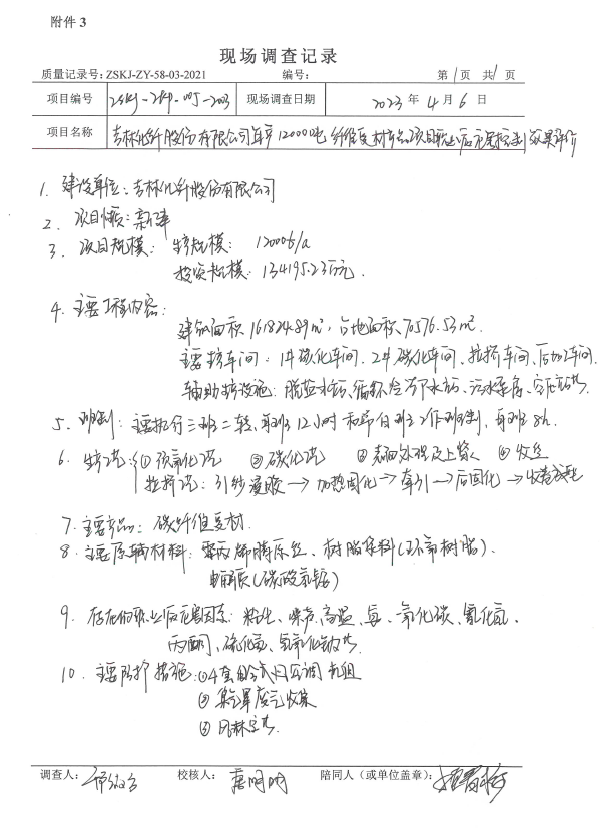 附件 3
现场调查记录
质量记录号: ZSKJ-ZY-58-03-2021 编号: 第 1 页 共 1 页
项目编号 现场调查日期 2023 年 4 月 6 日
项目名称 吉林化纤股份有限公司年产12000吨纤维复材产品项目职业病危害控制效果评价
1. 建设单位:吉林化纤股份有限公司
2. 项目性质:新建
3. 项目规模: 生产规模: 12000t/a
投资规模: 134195.23万元.
4. 主要工程内容:
建筑面积161824.89m²,占地面积70576.53m².
主要生产车间: 1#碳化车间、2#碳化车间、拉挤车间、后加工车间.
辅助生产设施: 脱盐水站、循环冷却水站、污水泵房、空压站等.
5. 班制: 主要执行三班二转,每班12小时和常白班工作班制,每班8h.
6. 生产工艺: ①预氧化 ②碳化 ③表面处理及上浆 ④收丝
拉挤工艺: 引纱浸胶→加热固化→牵引→后固化→收卷
7. 主要产品: 碳纤维复材.
8. 主要原辅材料: 聚丙烯腈原丝、树脂(环氧树脂).
电解质(碳酸氢铵)
9. 存在的职业病危害因素: 粉尘、噪声、高温、氨、一氧化碳、氰化氢、
丙酮、硫化氢、氢氧化钠等.
10. 主要防护措施: ①4套组合式空调机组
②集气罩废气收集
③风淋室等.
调查人: 校核人: 陪同人(或单位盖章):